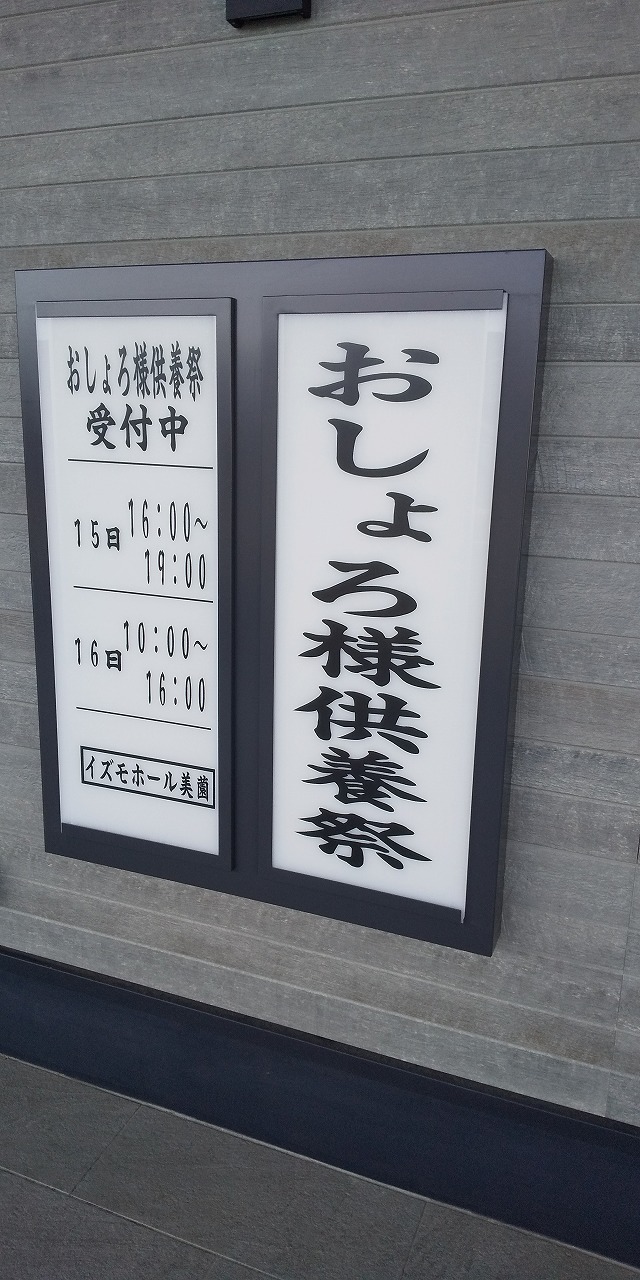 おしょろ様供養祭
おしょろ様供養祭
受付中
15日 16:00~
19:00
16日 10:00~
16:00
イズモホール美薗